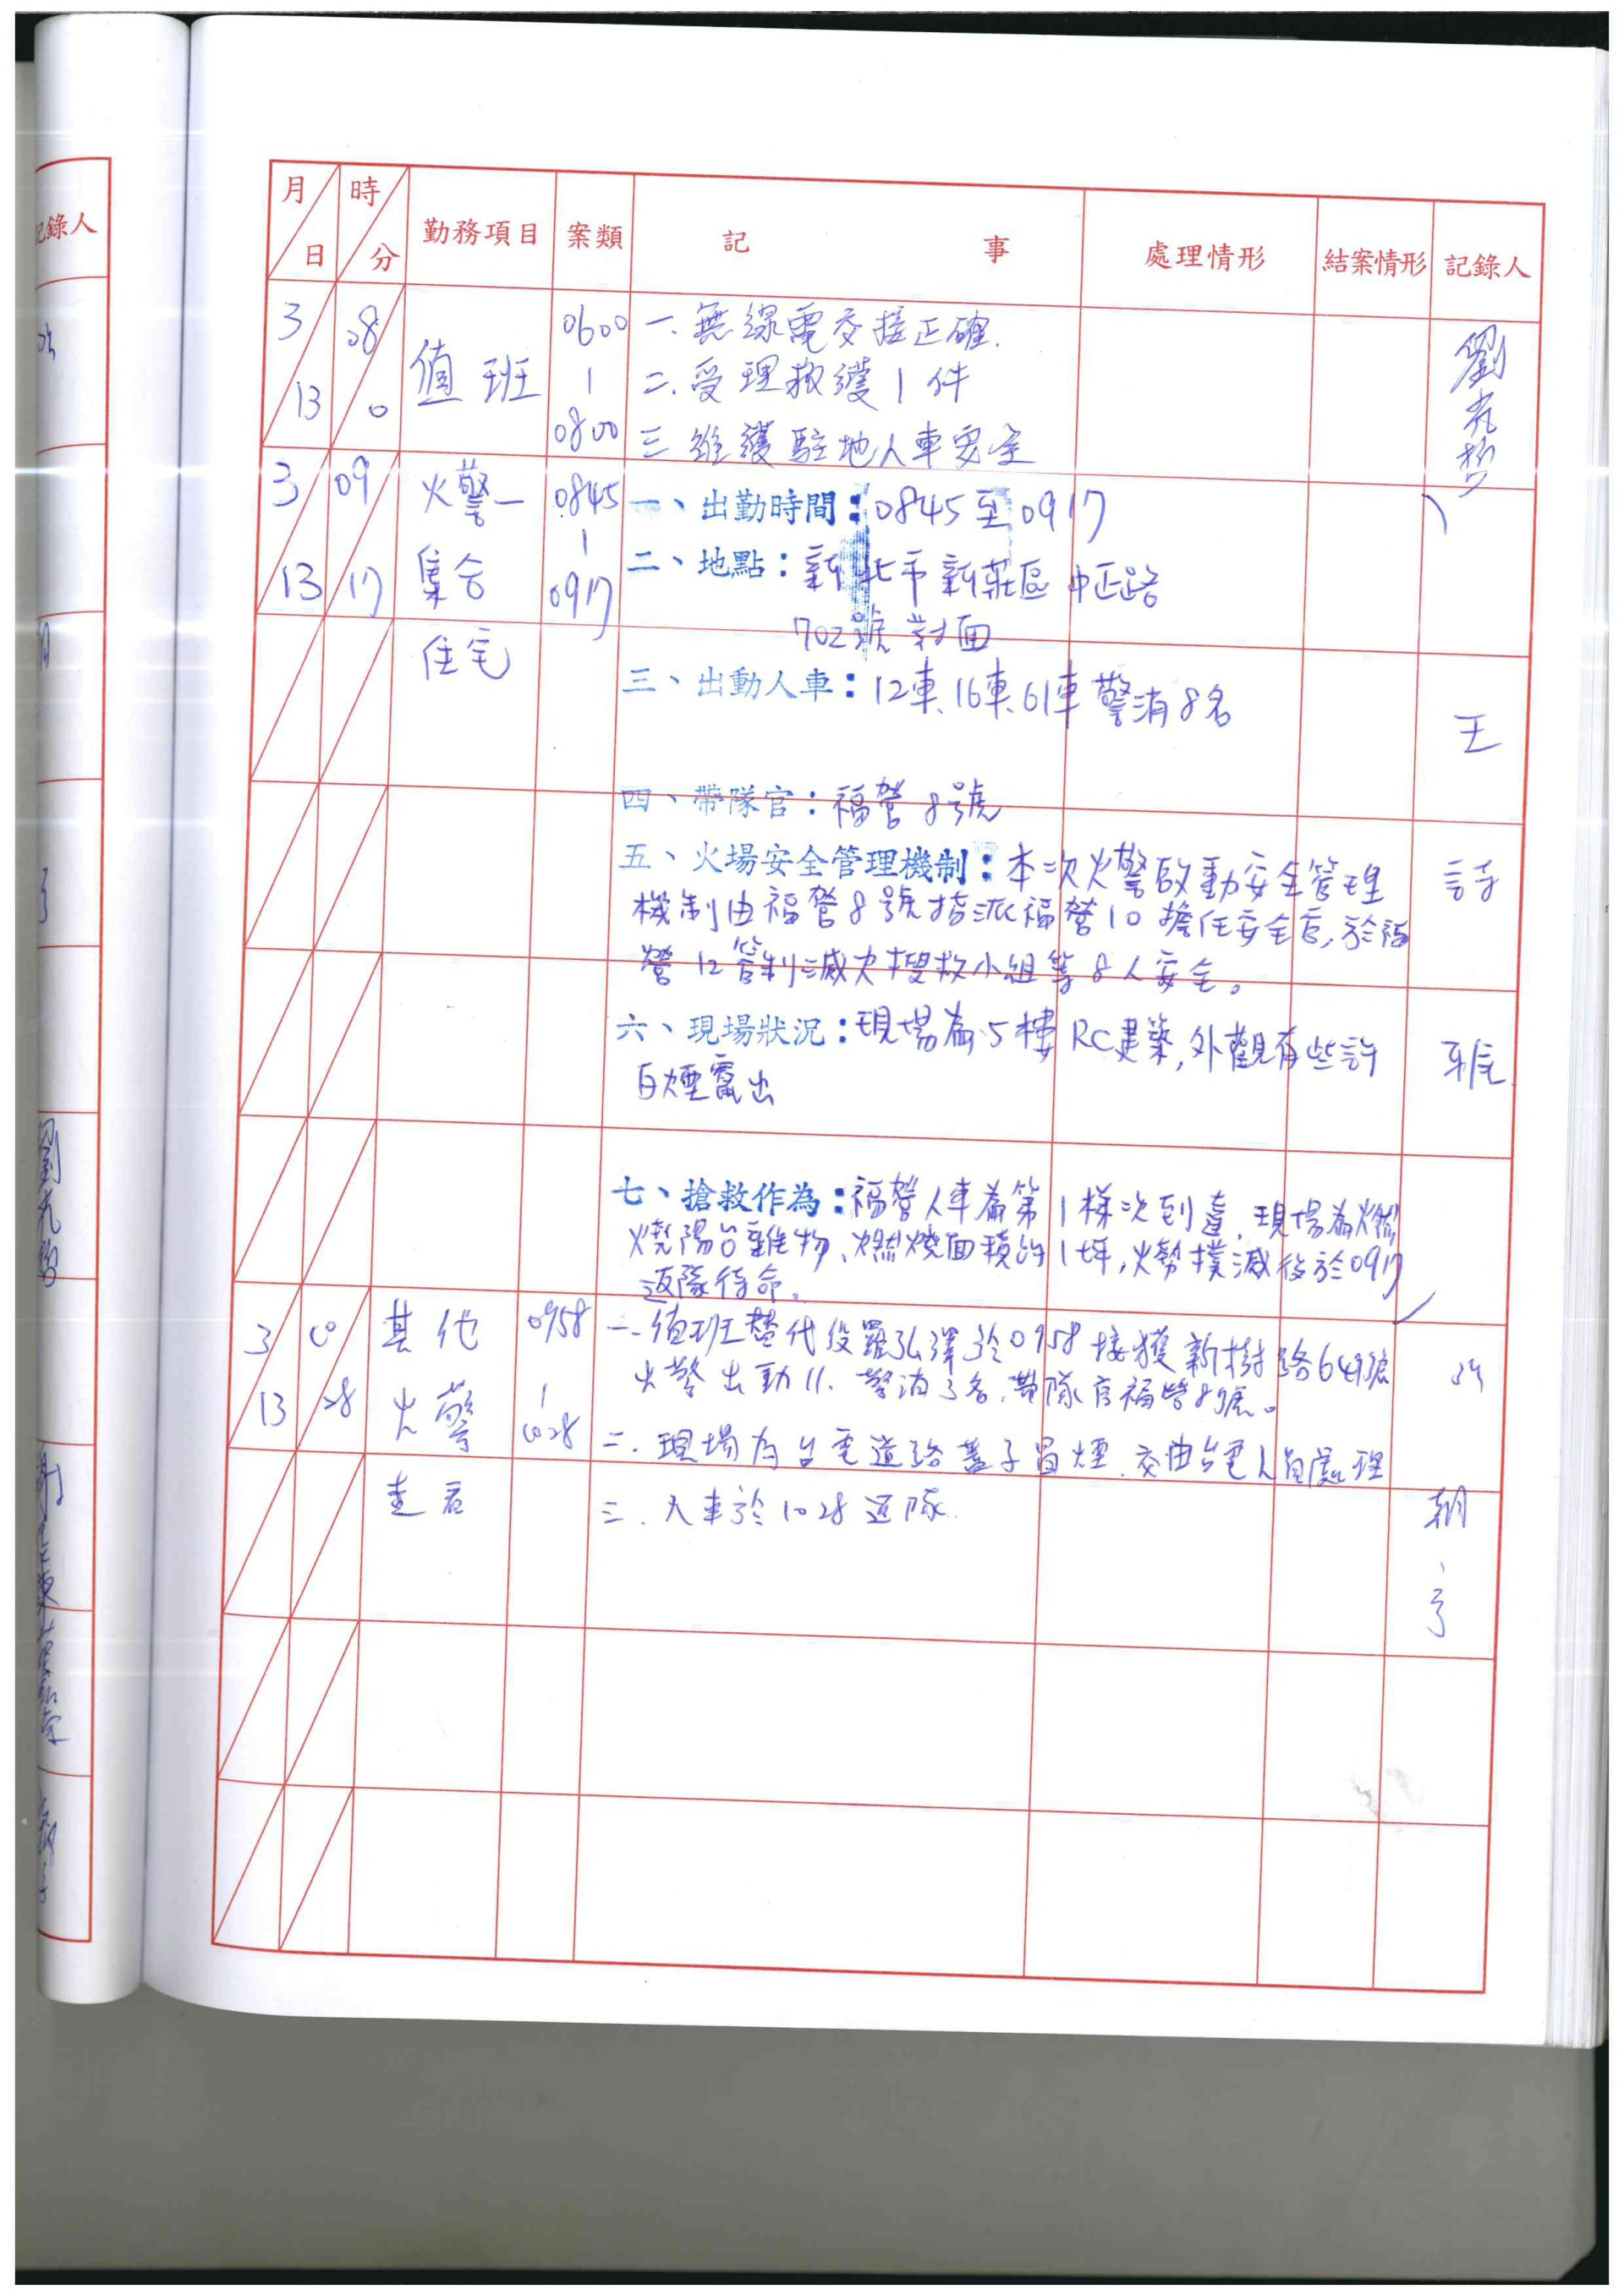 月 日 時 分 勤務項目 案類 記事 處理情形 結案情形 記錄人
記錄人
3 13 08 0 值班 0600 | 0800
一、無線電交接正確.
二、受理救護1件
三 維護駐地人車安全
3 13 09 17 火警一 0845 | 0917
集合
住宅
一、出勤時間：0845至0917
二、地點：新北市新莊區中正路
702號對面
三、出動人車：12車、16車、61車 警消8名
四、帶隊官：福營8號
五、火場安全管理機制：本次火警啟動安全管理
機制由福營8號指派福營10擔任安全官,於福
營12管制滅火搜救小組等8人安全。
六、現場狀況：現場為5樓RC建築,外觀有些許
白煙竄出
七、搶救作為：福營人車為第1梯次到達,現場為燃
燒陽台雜物、燃燒面積約1坪,火勢撲滅後於0917
返隊待命。
王
詩
雅
3 13 10 28 其他 0958 | 1028
火警
一.值班替代役羅弘澤於0958接獲新樹路649號
火警出動11.警消3名.帶隊官福營8號。
二.現場為台電道路蓋子冒煙.交由台電人員處理
三.人車於1028返隊.
朝